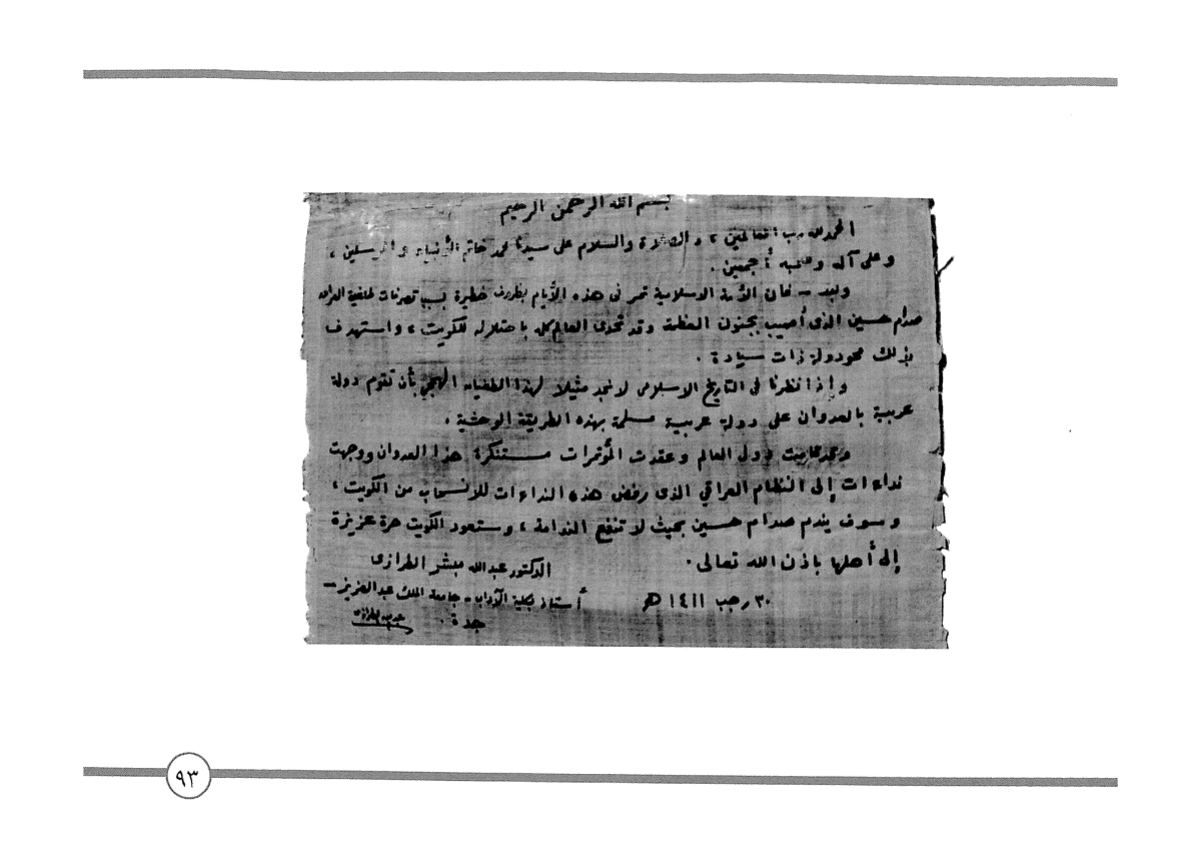 بسم الله الرحمن الرحيم
الحمد لله رب العالمين ، والصلاة والسلام على سيدنا محمد خاتم الأنبياء والمرسلين ،
وعلى آله وصحبه أجمعين .
وبعد - فان الأمة الاسلامية تمر فى هذه الأيام بظروف خطيرة بسبب تصرفات لطاغية العراق
صدام حسين الذى أصيب بجنون العظمة وقد تحدى العالم كله باحتلاله للكويت ، واستهدف
بذلك محو دولة ذات سيادة .
وإذا نظرنا فى التاريخ الاسلامى لا نجد مثيلا لهذا الطغيان الهمجي بأن تقوم دولة
عربية بالعدوان على دولة عربية مسلمة بهذه الطريقة الوحشية .
وقد دول العالم وعقدت المؤتمرات مستنكرة هذا العدوان ووجهت
نداءات إلى النظام العراقي الذى رفض هذه النداءات للانسحاب من الكويت ،
وسوف يندم صدام حسين بحيث لا تنفع الندامة ، وستعود الكويت حرة عزيزة
إلى أهلها باذن الله تعالى .
الدكتور عبدالله مبشر الطرازى
أستاذ بكلية الآداب - جامعة الملك عبدالعزيز -
جدة .
٣٠ رجب ١٤١١ هـ
٩٣